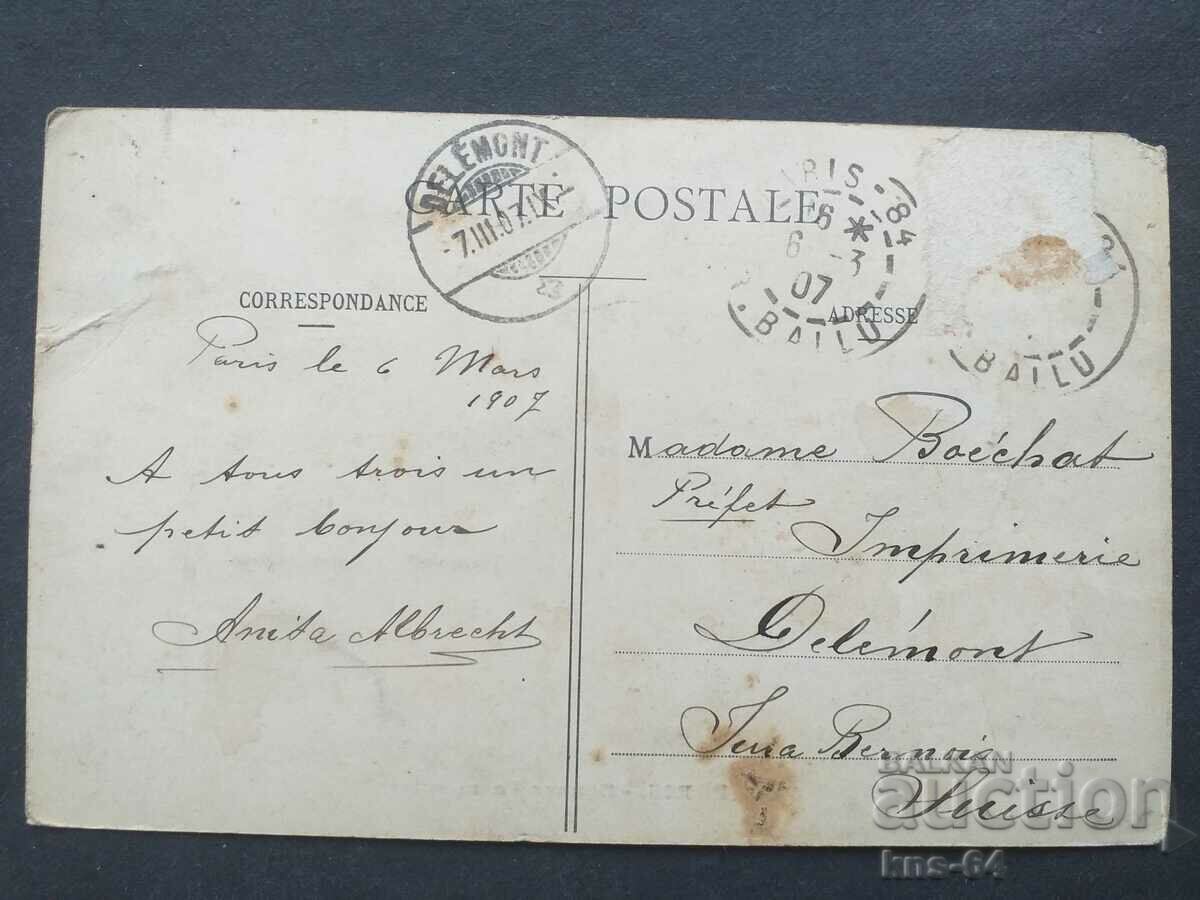 CARTE POSTALE
DELÉMONT
-7.III.07.IX-
PARIS · 84
6 *
6 -3
07
R. BALLU
BALLU
CORRESPONDANCE
ADRESSE
Paris le 6 Mars
1907
A tous trois un
petit bonjour
Anita Albrecht
Madame Boéchat
Préfet
Imprimerie
Delémont
Jura Bernois
Suisse
BALKAN
auction
kns-64